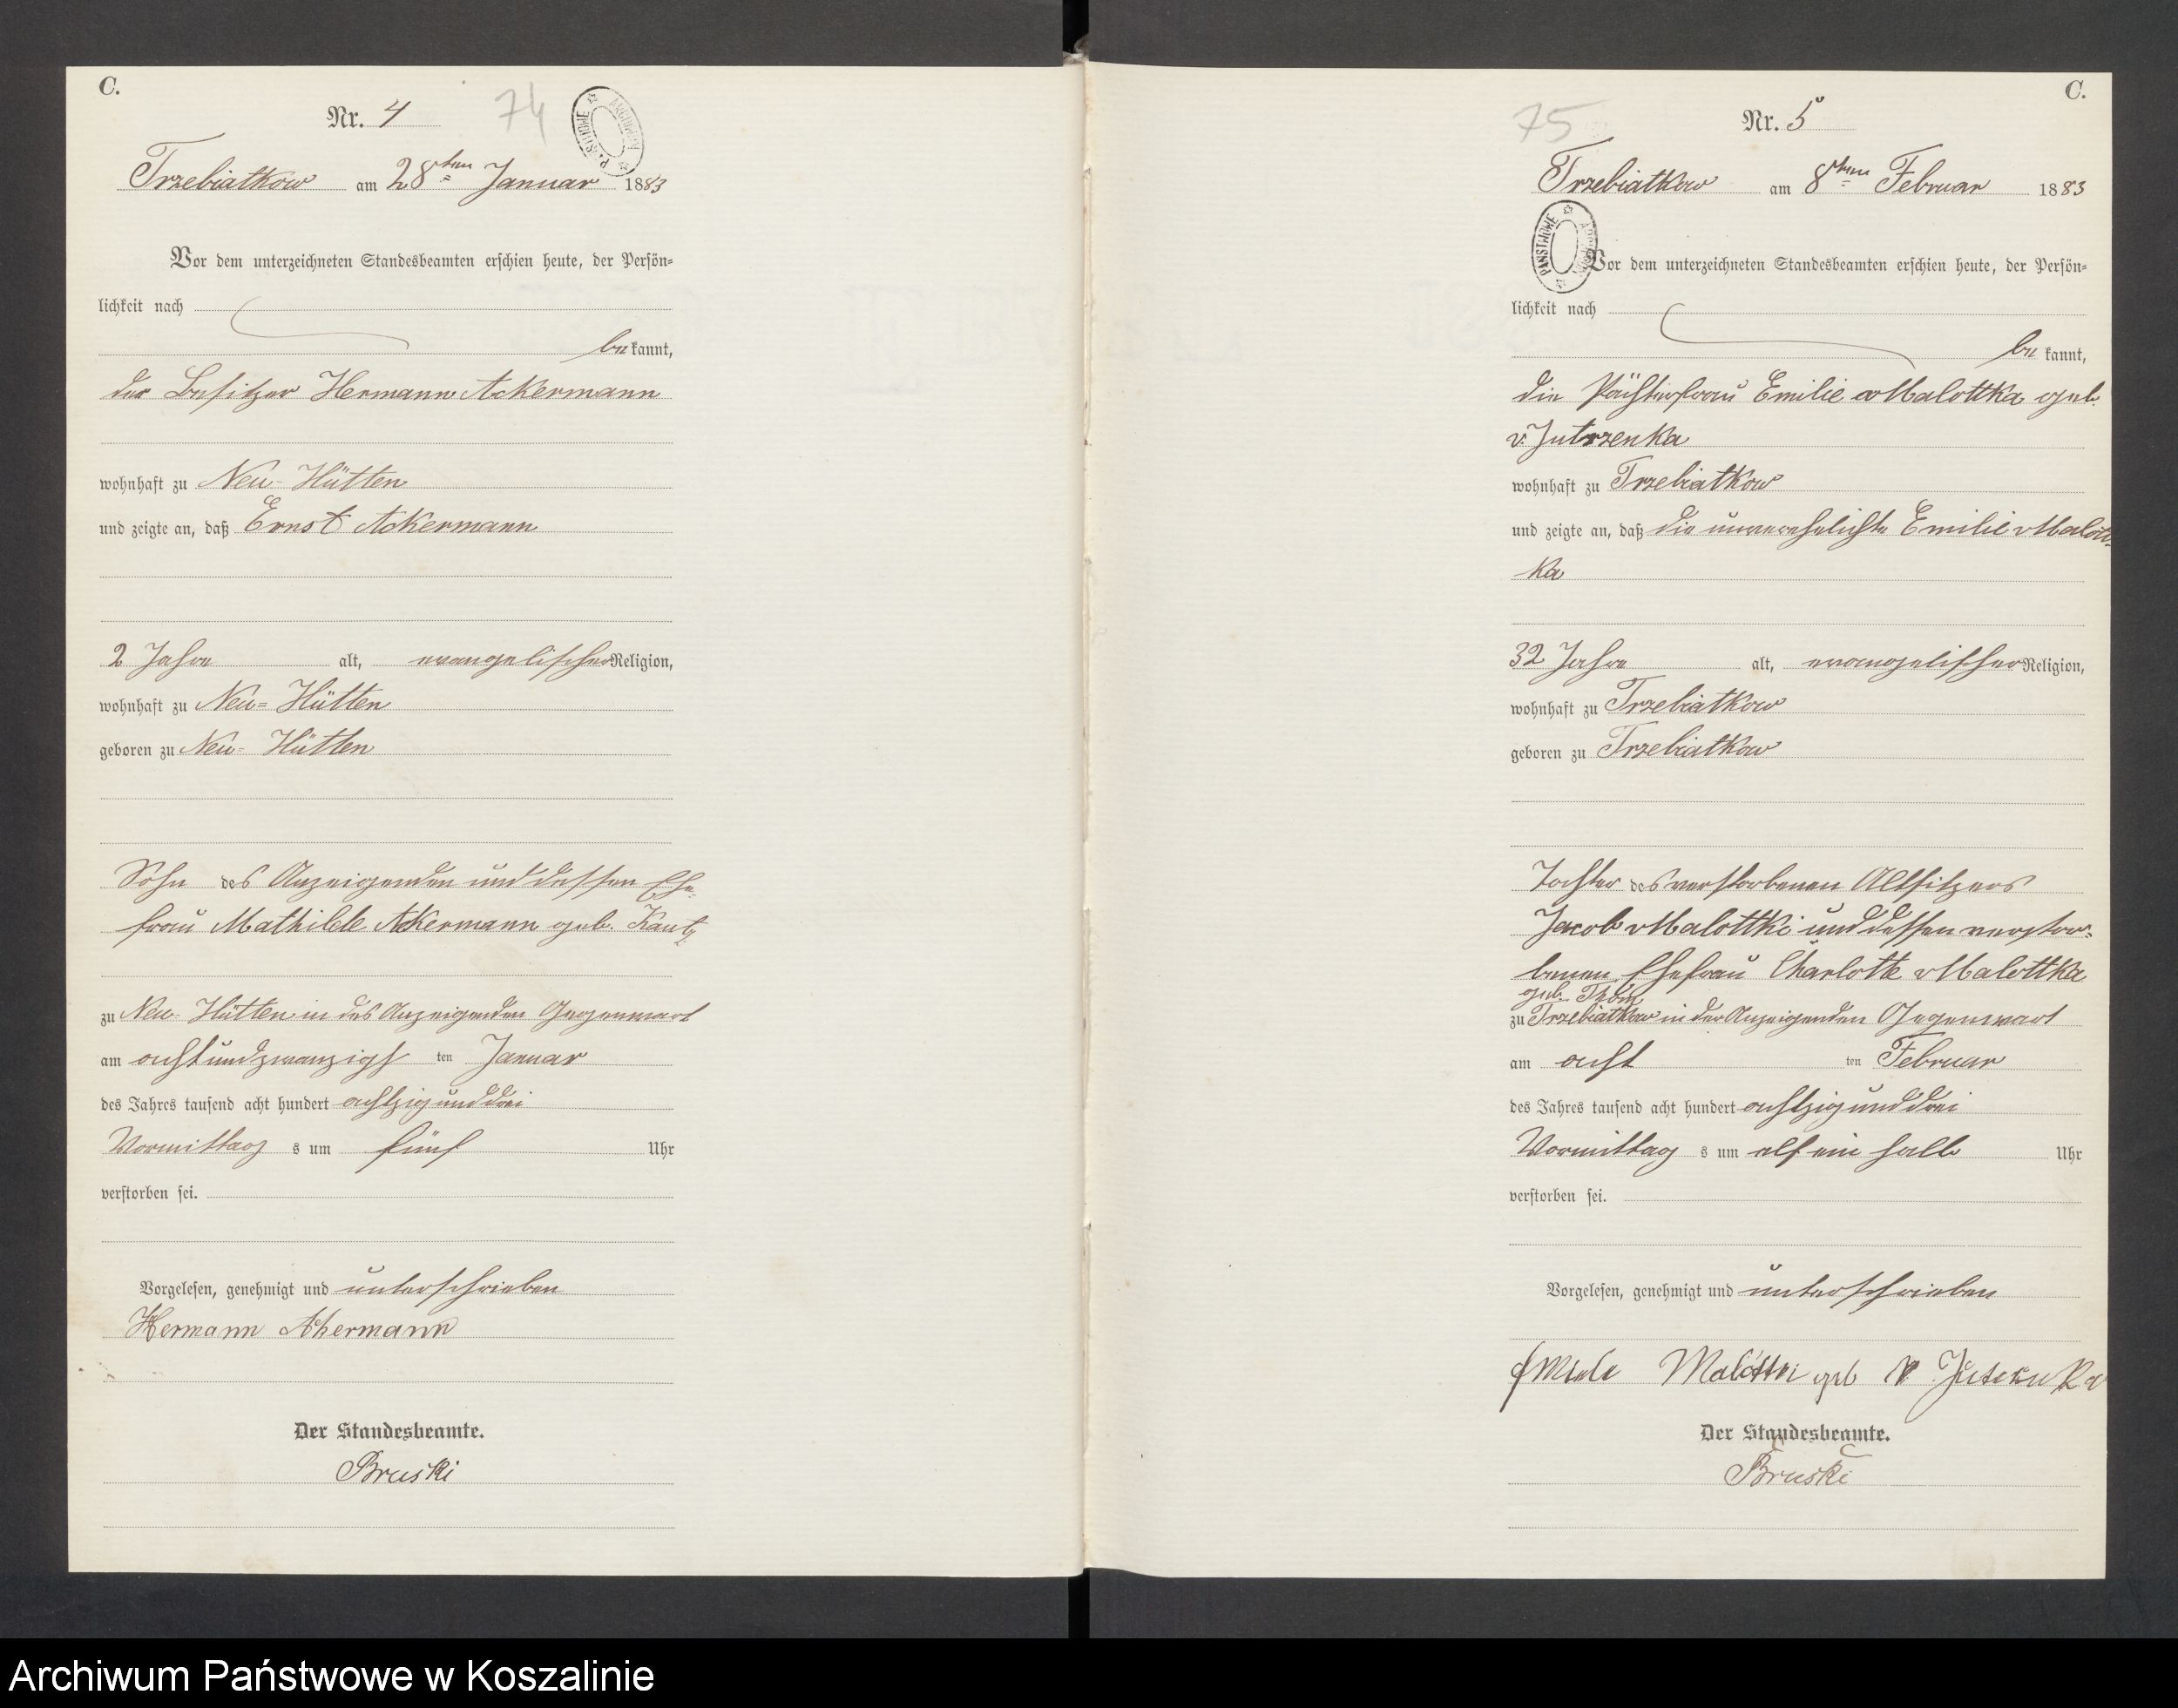 C.
Nr. 4
74
PAŃSTWOWE ARCHIWUM
Trzebiatkow am 28ten Januar 1883
Vor dem unterzeichneten Standesbeamten erschien heute, der Persön-
lichkeit nach
bekannt,
der Besitzer Hermann Ackermann
wohnhaft zu Neu-Hütten
und zeigte an, daß Ernst Ackermann
2 Jahre alt, evangelischer Religion,
wohnhaft zu Neu-Hütten
geboren zu Neu-Hütten
Sohn des Anzeigenden und dessen Ehe-
frau Mathilde Ackermann geb. Kautz
zu Neu-Hütten in des Anzeigenden Gegenwart
am achtundzwanzigsten Januar
des Jahres tausend acht hundert achtzig und drei
Vormittags um fünf Uhr
verstorben sei.
Vorgelesen, genehmigt und unterschrieben
Hermann Akermann
Der Standesbeamte.
Bruski
C.
75
Nr. 5
Trzebiatkow am 8ten Februar 1883
PAŃSTWOWE ARCHIWUM
Vor dem unterzeichneten Standesbeamten erschien heute, der Persön-
lichkeit nach
bekannt,
die Pächterfrau Emilie v Malottka geb.
v. Jutrzenka
wohnhaft zu Trzebiatkow
und zeigte an, daß die unverehelichte Emilie v Malott-
ka
32 Jahre alt, evangelischer Religion,
wohnhaft zu Trzebiatkow
geboren zu Trzebiatkow
Tochter des verstorbenen Altsitzers
Jacob v Malottki und dessen verstor-
benen Ehefrau Charlotte v Malottka
geb.
zu Trzebiatkow in der Anzeigenden Gegenwart
am achten Februar
des Jahres tausend acht hundert achtzig und drei
Vormittags um elf ein halb Uhr
verstorben sei.
Vorgelesen, genehmigt und unterschrieben
Malottki geb v
Der Standesbeamte.
Bruski
Archiwum Państwowe w Koszalinie